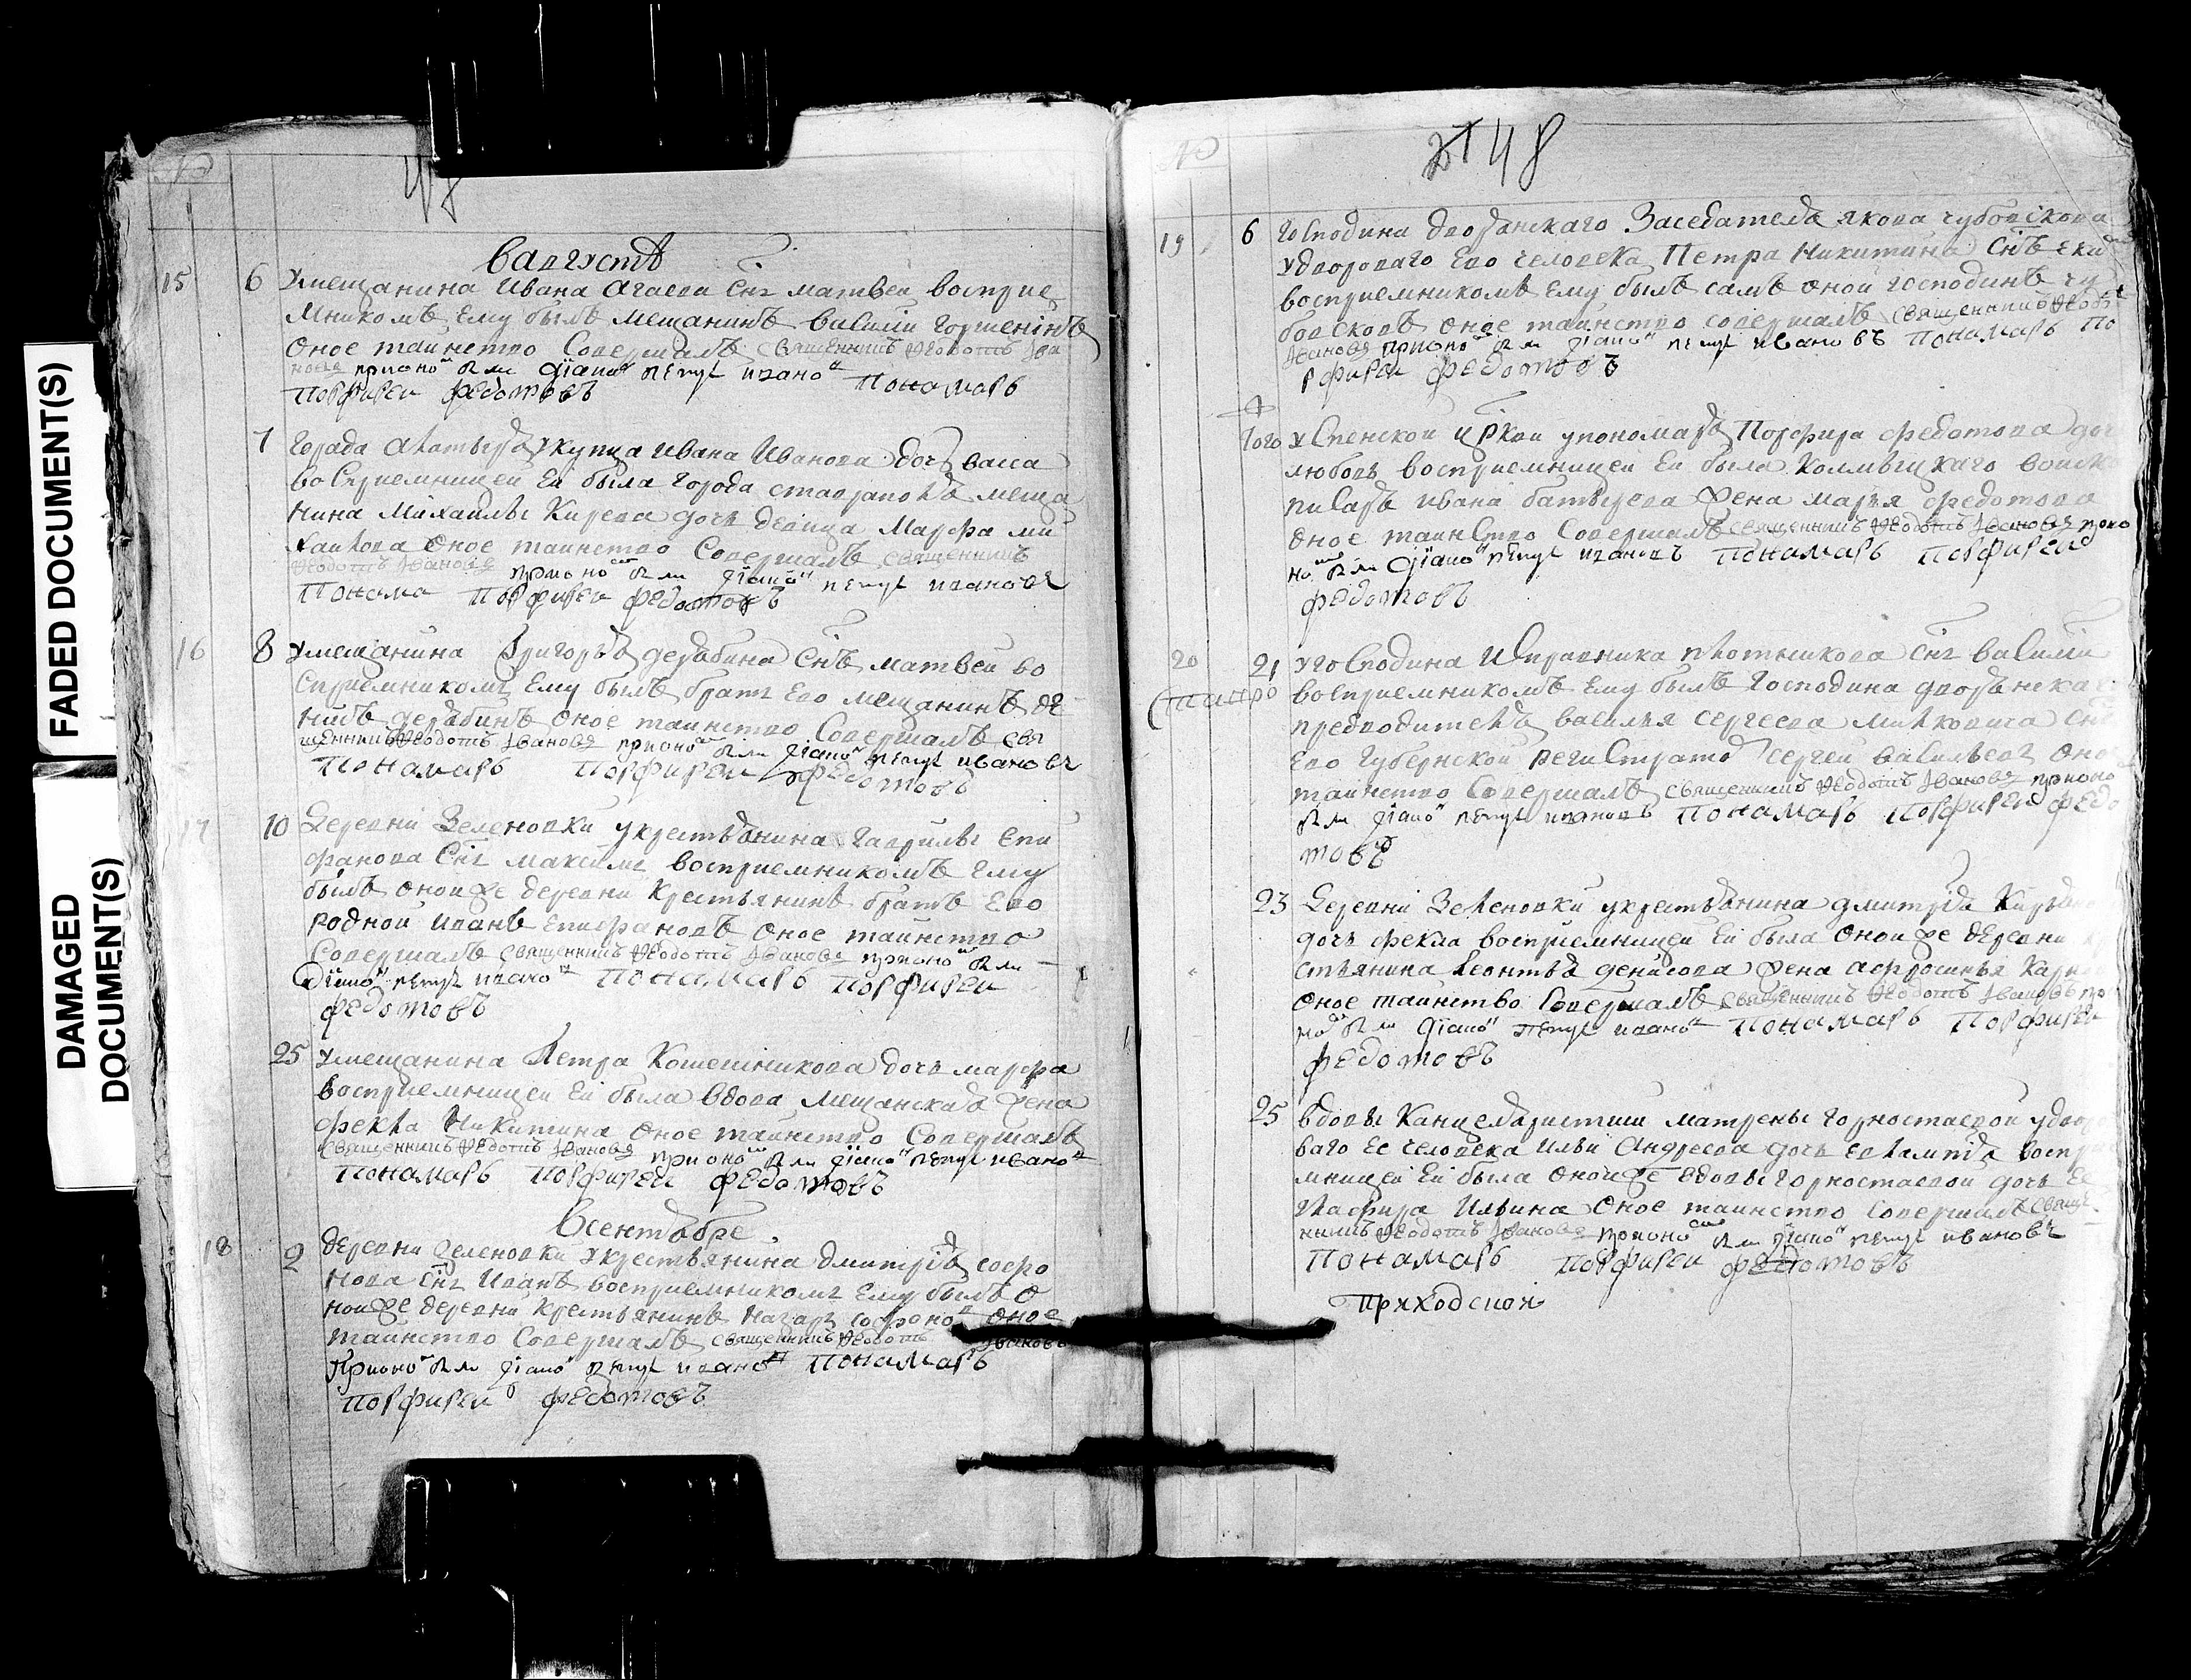 FADED DOCUMENT(S)
DAMAGED
DOCUMENT(S)
48
Вавгустѣ
15 6 Умещанина Ивана Агаева Снъ матвеи восприе
мникомъ Ему былъ мещанинъ васили Горшенінъ
Оное таинство Совершалъ священникъ Ѳеодотъ Іва
новъ прионо діако петръ ивано Понамарь
Порфиреи федотовъ
7 Города укупца Ивана Иванова дочь васса
во Сприемницеи Еи была Города ставрапопя меща
нина Михаилы Кирева дочь девица Марфа ми
хаилова Оное таинство Совершалъ священникъ
Ѳеодотъ Івановъ прионо діако петръ ивановъ
Понама Порфиреи федотовъ
16 8 Умещанина Григорья дерябина Снъ матвеи во
Сприемникомъ Ему былъ братъ Ево мещанинъ де
нисъ дерябинъ Оное таинство Совершалъ свя
щенникъ Ѳеодотъ Івановъ прионо діако петръ ивановъ
Понамарь Порфиреи федотовъ
17 10 Деревни Зеленовки укрестьянина Гаврилы Епи
фанова Снъ максимъ восприемникомъ Ему
былъ Онои же деревни Крестьянинъ братъ Ево
родной иванъ Епифановъ Оное таинство
Совершалъ священникъ Ѳеодотъ Івановъ прионо
діако петръ ивано Понамарь Порфиреи
федотовъ
25 Умещанина Петра Кошешникова дочь марфа
восприемницеи Еи была вдова мещанская жена
фекла Никитина Оное таинство Совершалъ
священникъ Ѳеодотъ Івановъ прионо діако петръ ивано
Понамарь Порфиреи федотовъ
Всентябре
18 2 деревни Зеленовки укрестьянина дмитрія софро
нова Снъ Иванъ восприемникомъ Ему былъ О
нои же деревни крестьянинъ назаръ софроно Оное
таинство Совершалъ священникъ Ѳеодотъ Івановъ
прионо діако петръ ивано Понамарь
Порфиреи федотовъ
48
19 6 Господина дворянскаго Заседателя якова чубовскова
удвороваго Ево человека Петра Никитина Снъ
восприемникомъ Ему былъ самъ оной господинъ чу
бовсковъ Оное таинство совершалъ священникъ Ѳеодо
Івановъ прионо діако петръ ивановъ Понамарь По
рфиреи федотовъ
Того успенской цркви упономаря Порфира федотова доч
любовь восприемницеи Еи была Колмыцкаго воиск
писаря ивана батырева жена марья федотова
Оное таинство Совершалъ священникъ Ѳеодотъ Івановъ
діако петръ ивановъ Понамарь Порфиреи
федотовъ
20 21 Уго Сподина Исправника плотникова Снъ васили
восприемникомъ Ему былъ Господина дворянска
предводителя василья сергеева милковича
Ево Губернской регистрато сергеи васильевъ Оно
таинство Совершалъ священникъ Ѳеодотъ Івановъ прионо
діако петръ ивановъ Понамарь Порфиреи федо
товъ
23 Деревни Зеленовки укрестьянина дмитрія
дочь фекла восприемницеи Еи была Онои же деревни
стьянина леонтья денисова жена афросинья
Оное таинство Совершалъ священникъ Ѳеодотъ Івановъ
діако петръ ивано Понамарь Порфиреи
федотовъ
25 Вдовы Канцеляристши матрены горностаевой удворо
ваго Ее человека ильи Андреева дочь воспри
мницеи Еи была Онои же вдовы горностаевои дочь Ее
Глафира Ильина Оное таинство Совершалъ свящ
нникъ Ѳеодотъ Івановъ прионо діако петръ ивановъ
Понамарь Порфиреи федотовъ